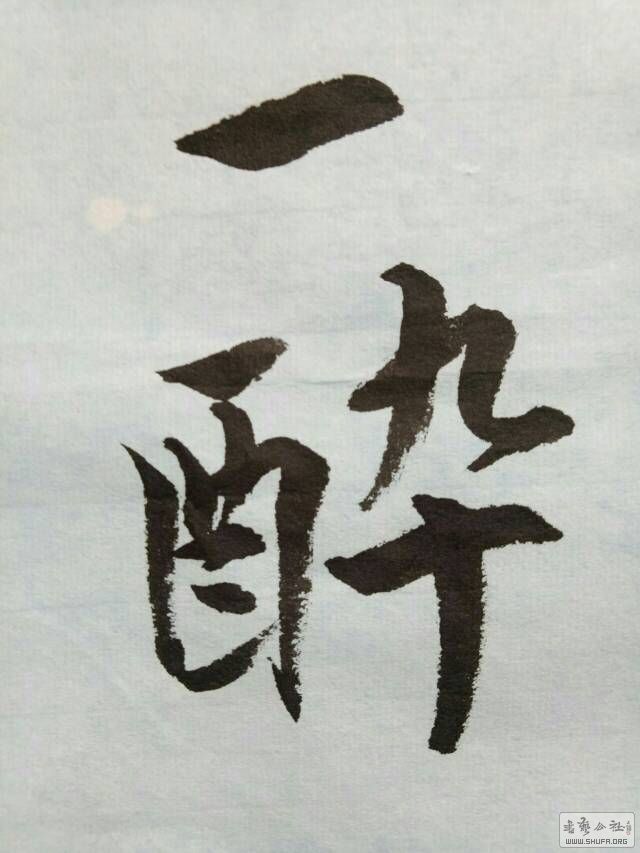 一
酔
書藝公社
WWW.SHUFA.ORG